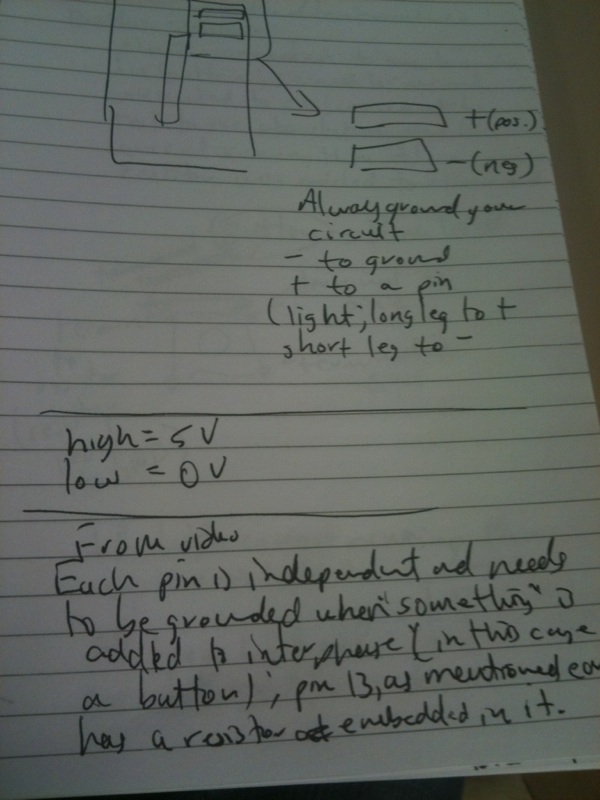 +(pos.)
-(neg)
Always ground your
circuit
- to ground
+ to a pin
(light; long leg to +
short leg to -
high = 5V
low = 0V
From video
Each pin is independent and needs
to be grounded when "something" is
added to interphase (in this case
a button); pin 13, as mentioned ea
has a resistor embedded in it.